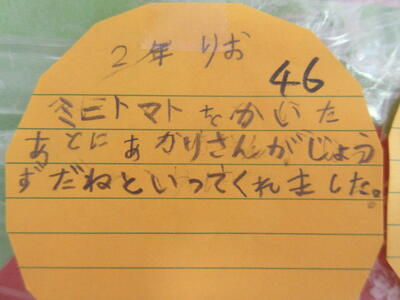 2年 りお
46
ミニトマトをかいた
あとにあかりさんがじょう
ずだねといってくれました。